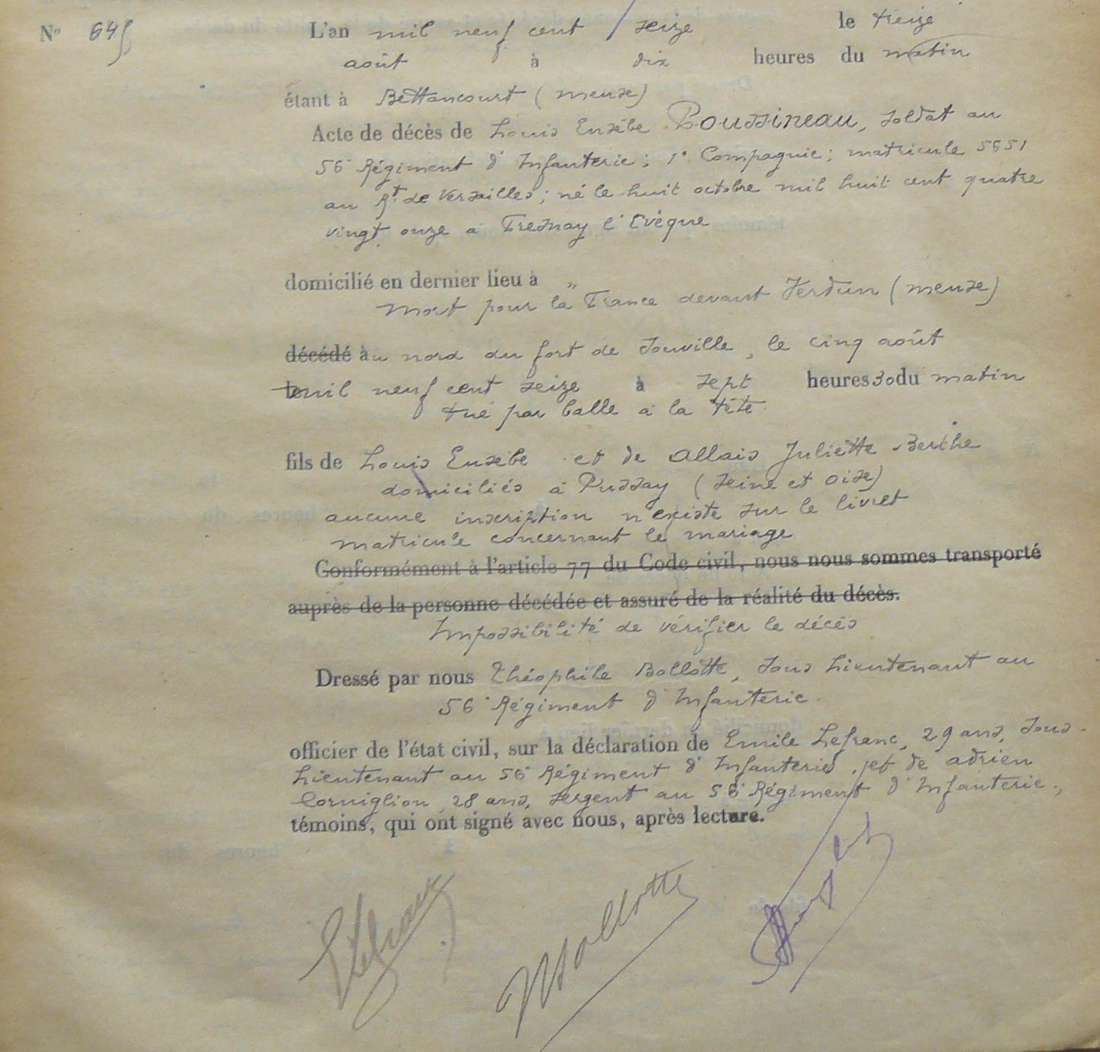 N° 645
L'an mil neuf cent seize le treize
août à dix heures du matin
étant à Bettancourt (meuse)
Acte de décès de Louis Eusèbe Poussineau, soldat au
56e Régiment d'Infanterie; 1e Compagnie; matricule 5651
au Rt de Versailles; né le huit octobre mil huit cent quatre
vingt onze à Fresnay l'Evèque
domicilié en dernier lieu à "
mort pour la France devant Verdun (meuse)
décédé à au nord du fort de Souville, le cinq août
le mil neuf cent seize à sept heures 30 du matin
tué par balle à la tête
fils de Louis Eusebe et de Allais Juliette Berthe
domiciliés à Pussay (Seine et Oise)
aucune inscription n'existe sur le livret
matricule concernant le mariage
Conformément à l'article 77 du Code civil, nous nous sommes transporté
auprès de la personne décédée et assuré de la réalité du décès.
Impossibilité de vérifier le décés
Dressé par nous Théophile Bollotte, Sous Lieutenant au
56e Régiment d'Infanterie.
officier de l'état civil, sur la déclaration de Emile Lefranc, 29 ans, Sous-
Lieutenant au 56e Régiment d'Infanterie et de adrien
Corniglion, 28 ans, sergent au 56e Régiment d'Infanterie.,
témoins, qui ont signé avec nous, après lecture.